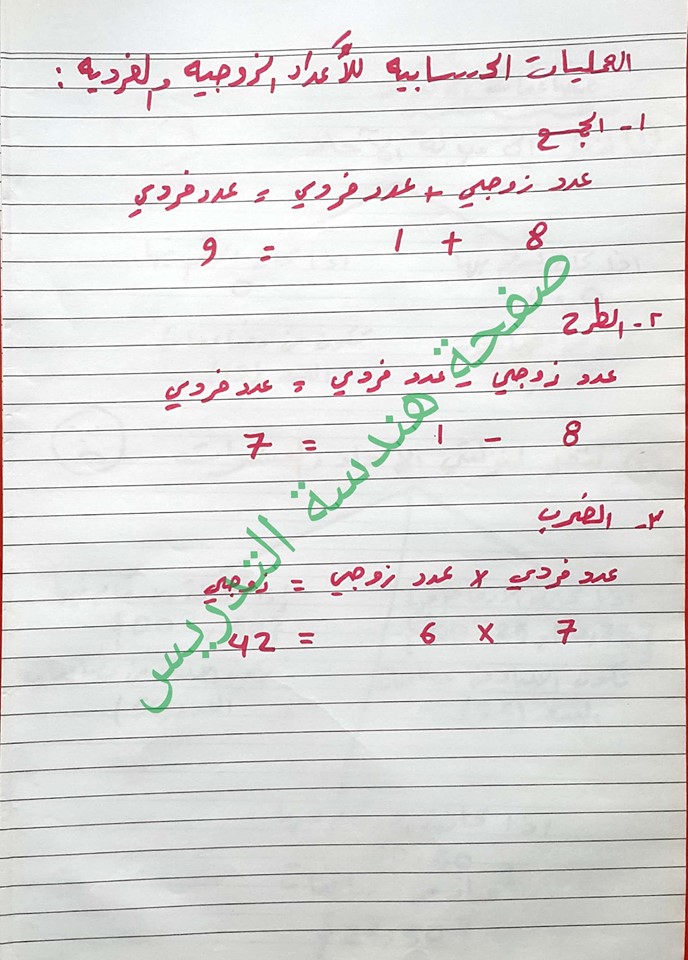 العمليات الحسابيه للأعداد الزوجيه والفرديه :
١- الجمع
عدد زوجي + عدد فردي = عدد فردي
8 + 1 = 9
٢- الطرح
عدد زوجي - عدد فردي = عدد فردي
8 - 1 = 7
٣- الضرب
عدد فردي x عدد زوجي = زوجي
7 x 6 = 42
صفحة هندسة التدريس